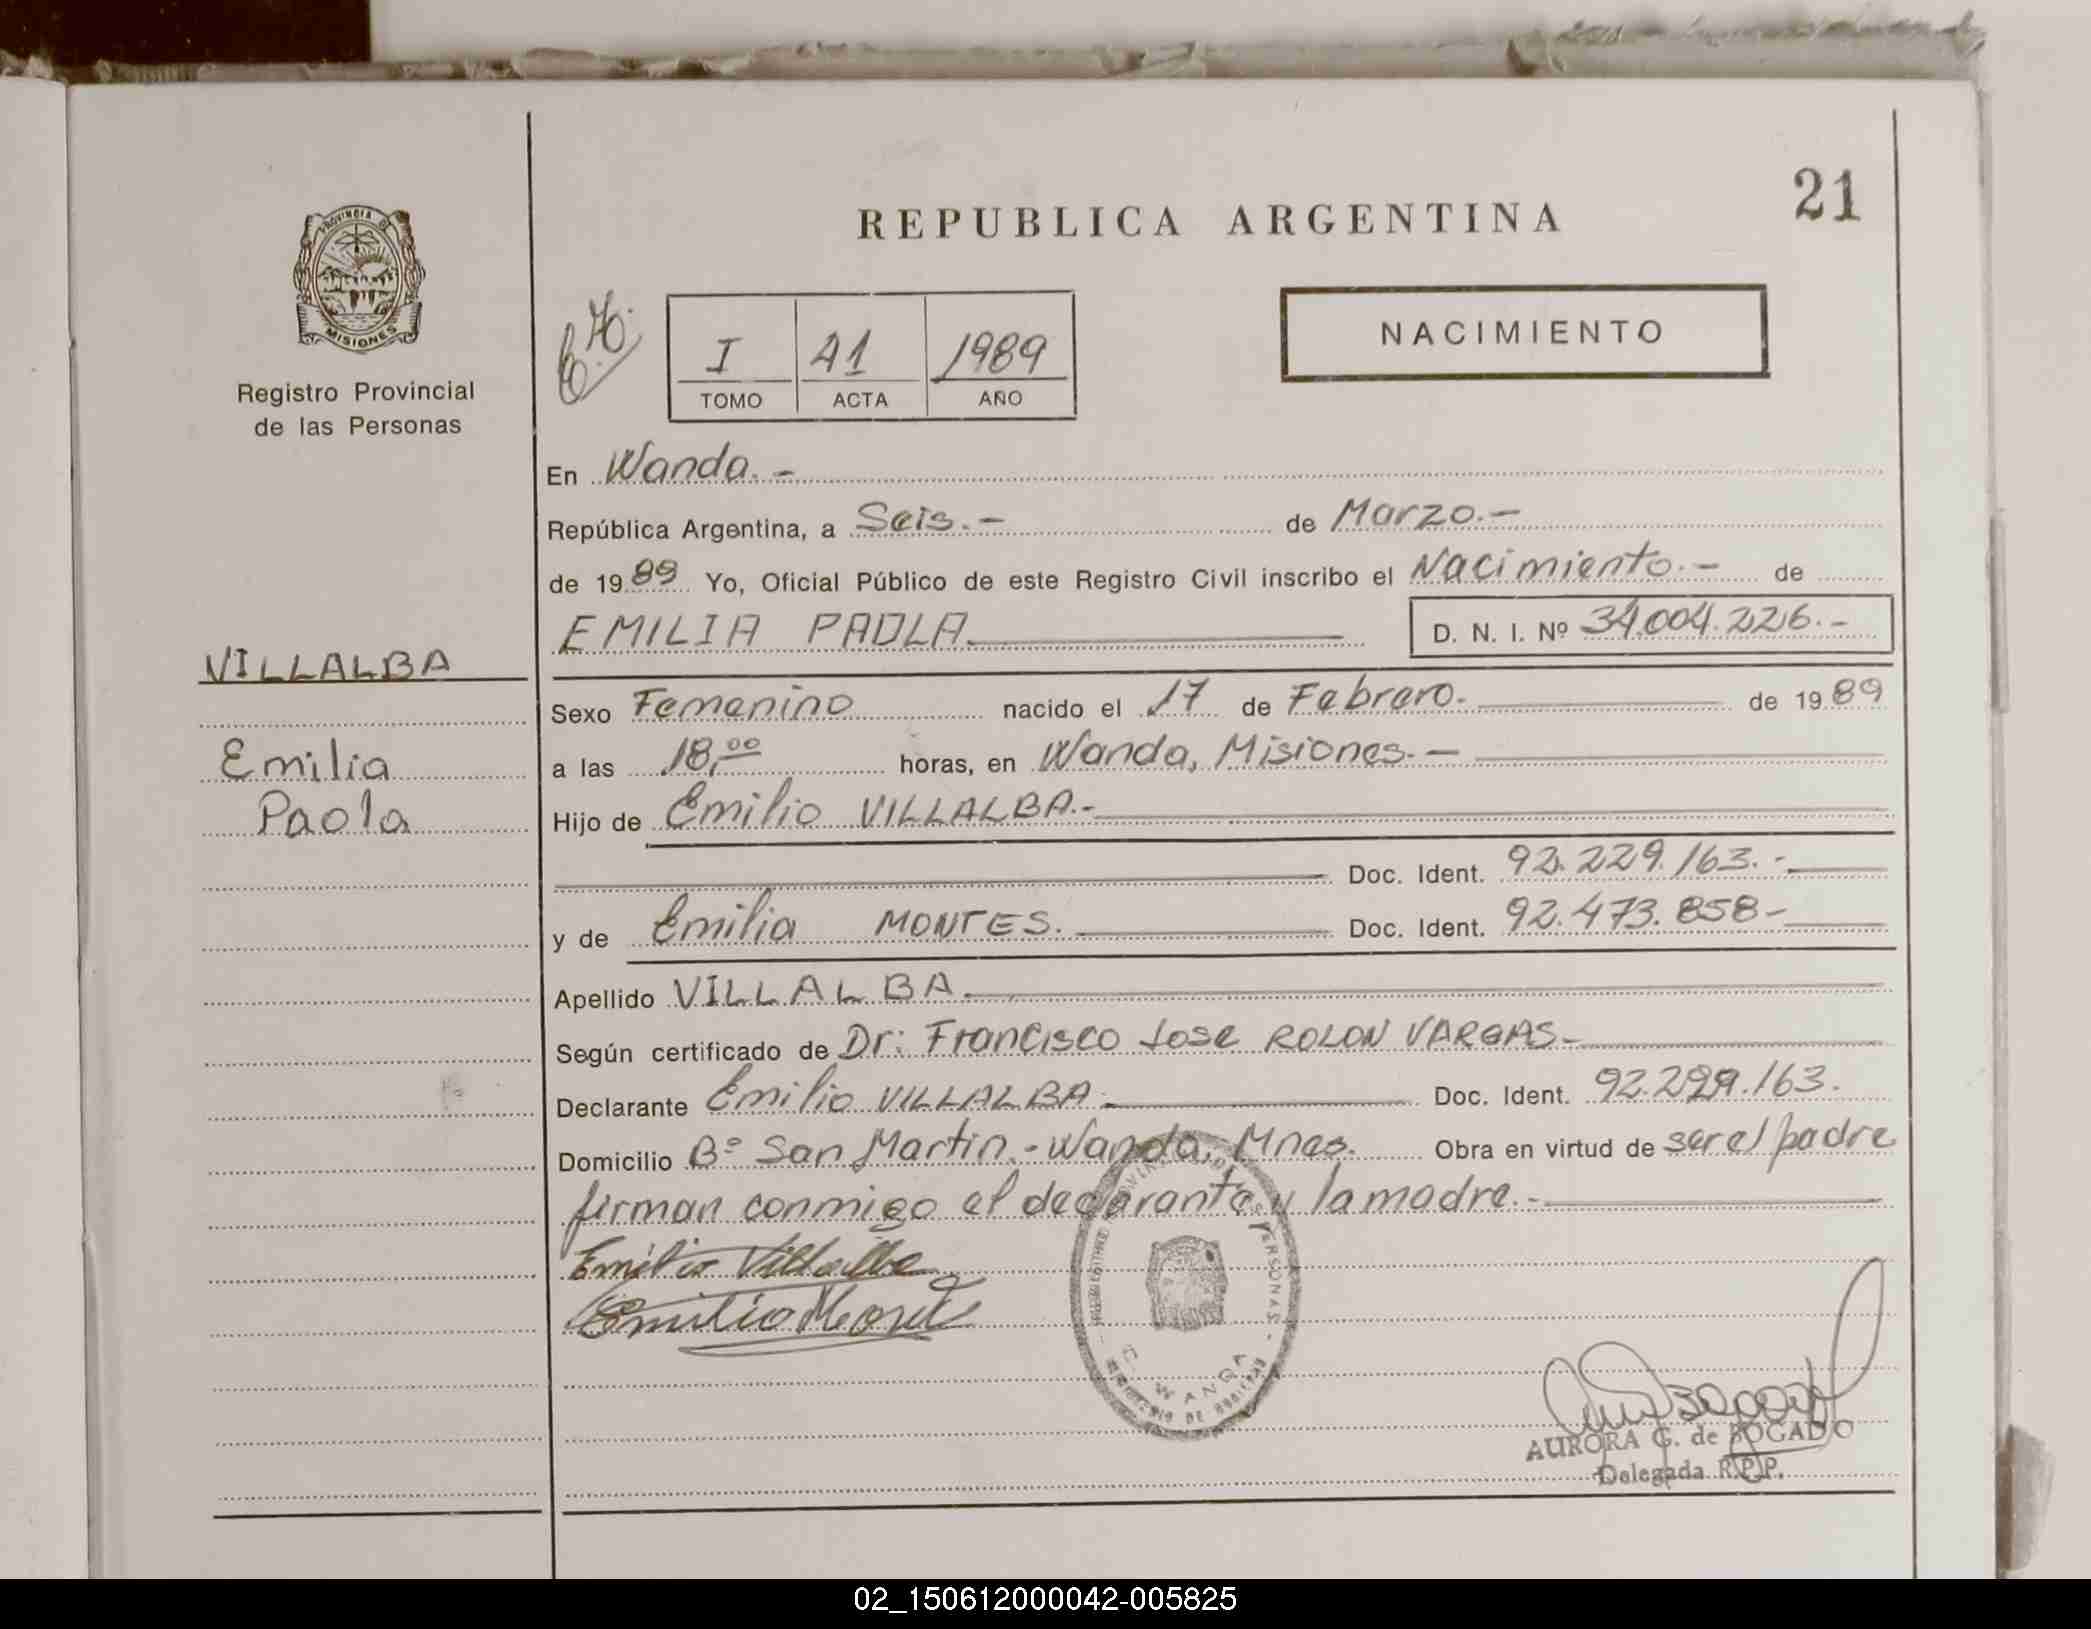 REPUBLICA ARGENTINA
21
PROVINCIA DE
MISIONES
Registro Provincial
de las Personas
I 41 1989
TOMO ACTA AÑO
NACIMIENTO
En Wanda.-
República Argentina, a Seis.- de Marzo.-
de 1989 Yo, Oficial Público de este Registro Civil inscribo el Nacimiento.- de
EMILIA PAOLA D. N. I. Nº 34.004.226.-
VILLALBA
Sexo Femenino nacido el 17 de Febrero. de 1989
Emilia
a las 18,00 horas, en Wanda, Misiones.-
Paola
Hijo de Emilio VILLALBA.-
Doc. Ident. 92.229.163.-
y de Emilia MONTES. Doc. Ident. 92.473.858-
Apellido VILLALBA.
Según certificado de Dr: Francisco Jose ROLON VARGAS-
Declarante Emilio VILLALBA.- Doc. Ident. 92.229.163.
Domicilio Bº San Martin.-Wanda, Mnes. Obra en virtud de ser el padre
firman conmigo el declarante y la madre.-
Emilio Villalba
WANDA
AURORA G. de BOGADO
Delegada R.P.P.
02_150612000042-005825